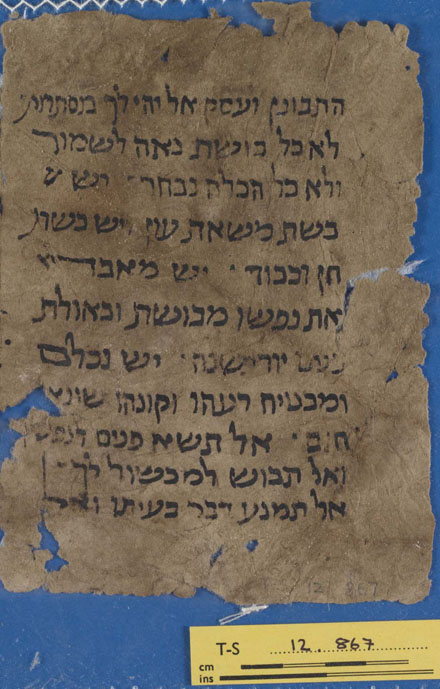 התבונן ועסק אל יהי לך בנסתרות
לא כל בושת נאה לשמור
ולא כל הכלם נבחר : יש
בשת משאת עון ויש בשת
חן וכבוד : יש מאבד
את נפשו מבושת ובאולת
פנים יורישנה : יש נכלם
ומבטיח רעהו וקונהו שונא
חנם : אל תשא פנים לנפשך
ואל תבוש למכשול לך :
אל תמנע דבר בעיתו ואל
12.867
T-S 12.867
cm
ins